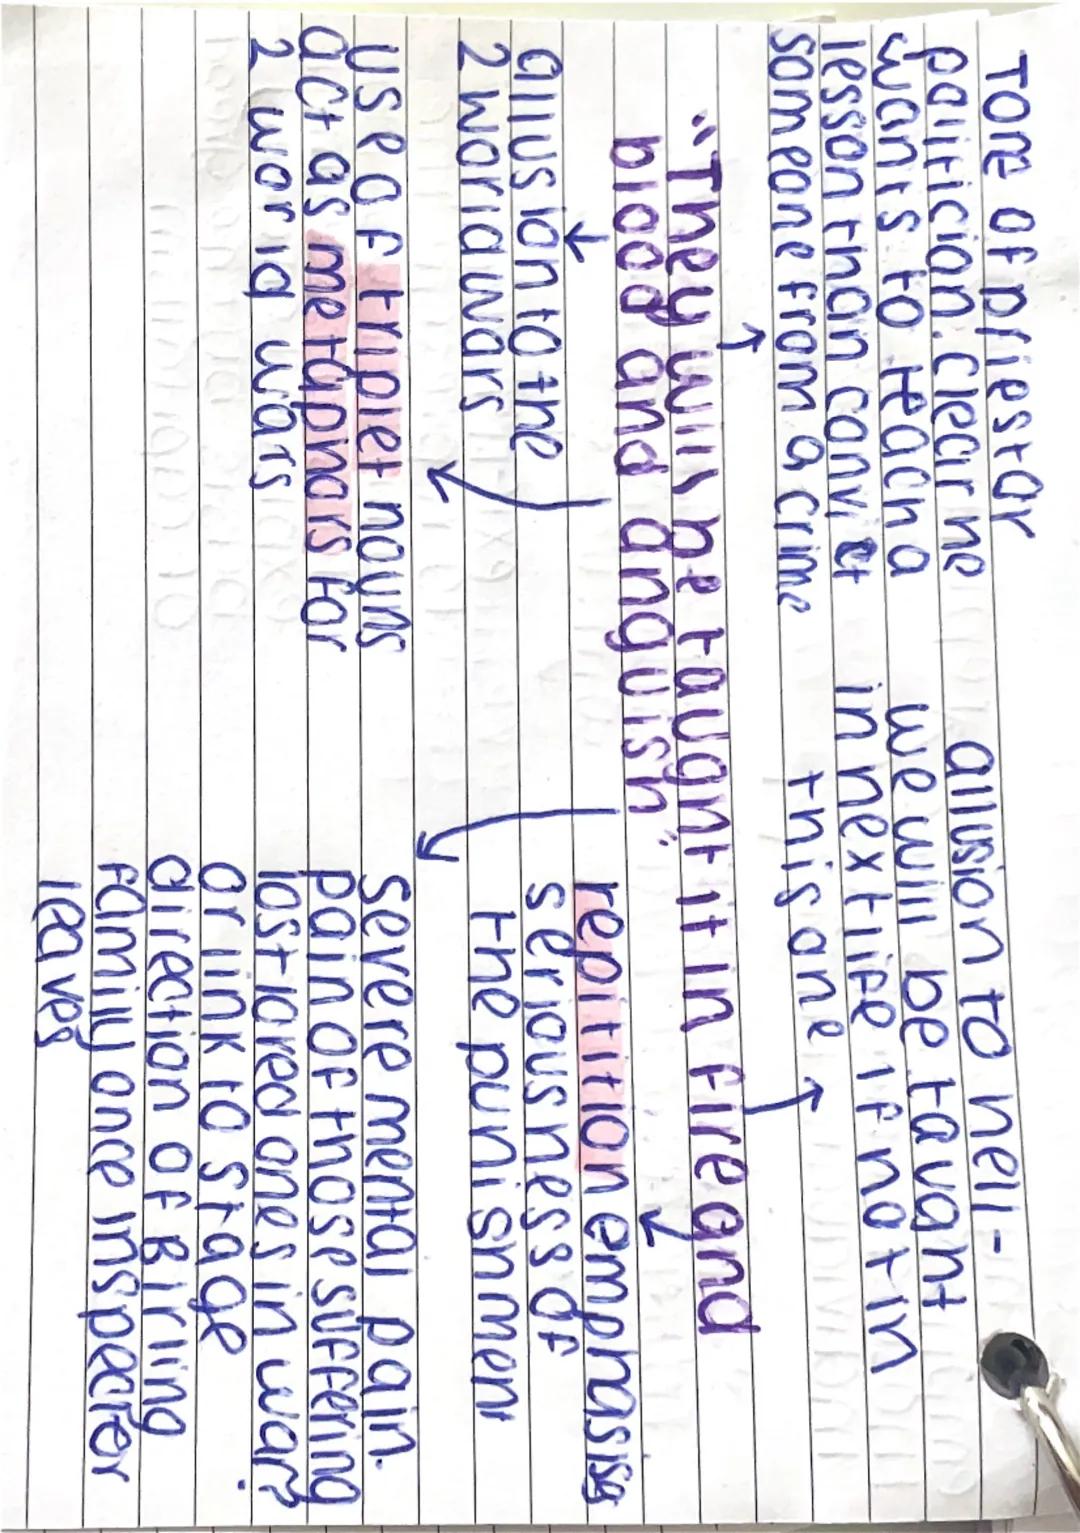 Tone of priest or
politician. Clear he
wants to teach a
lesson than convict
someone from a crime
allusion to hell -
we will be taught
in next life if not in
this one
"They will be taught it in fire and
blood and anguish"
allusion to the
2 world wars
repitition emphasiss
seriousness of
the punishment
Use of triplet nouns
act as metaphors for
2 world wars
Severe mental pain.
pain of those suffering
lost loved ones in war?
or link to stage
direction of Birling
family once inspecter
leaves